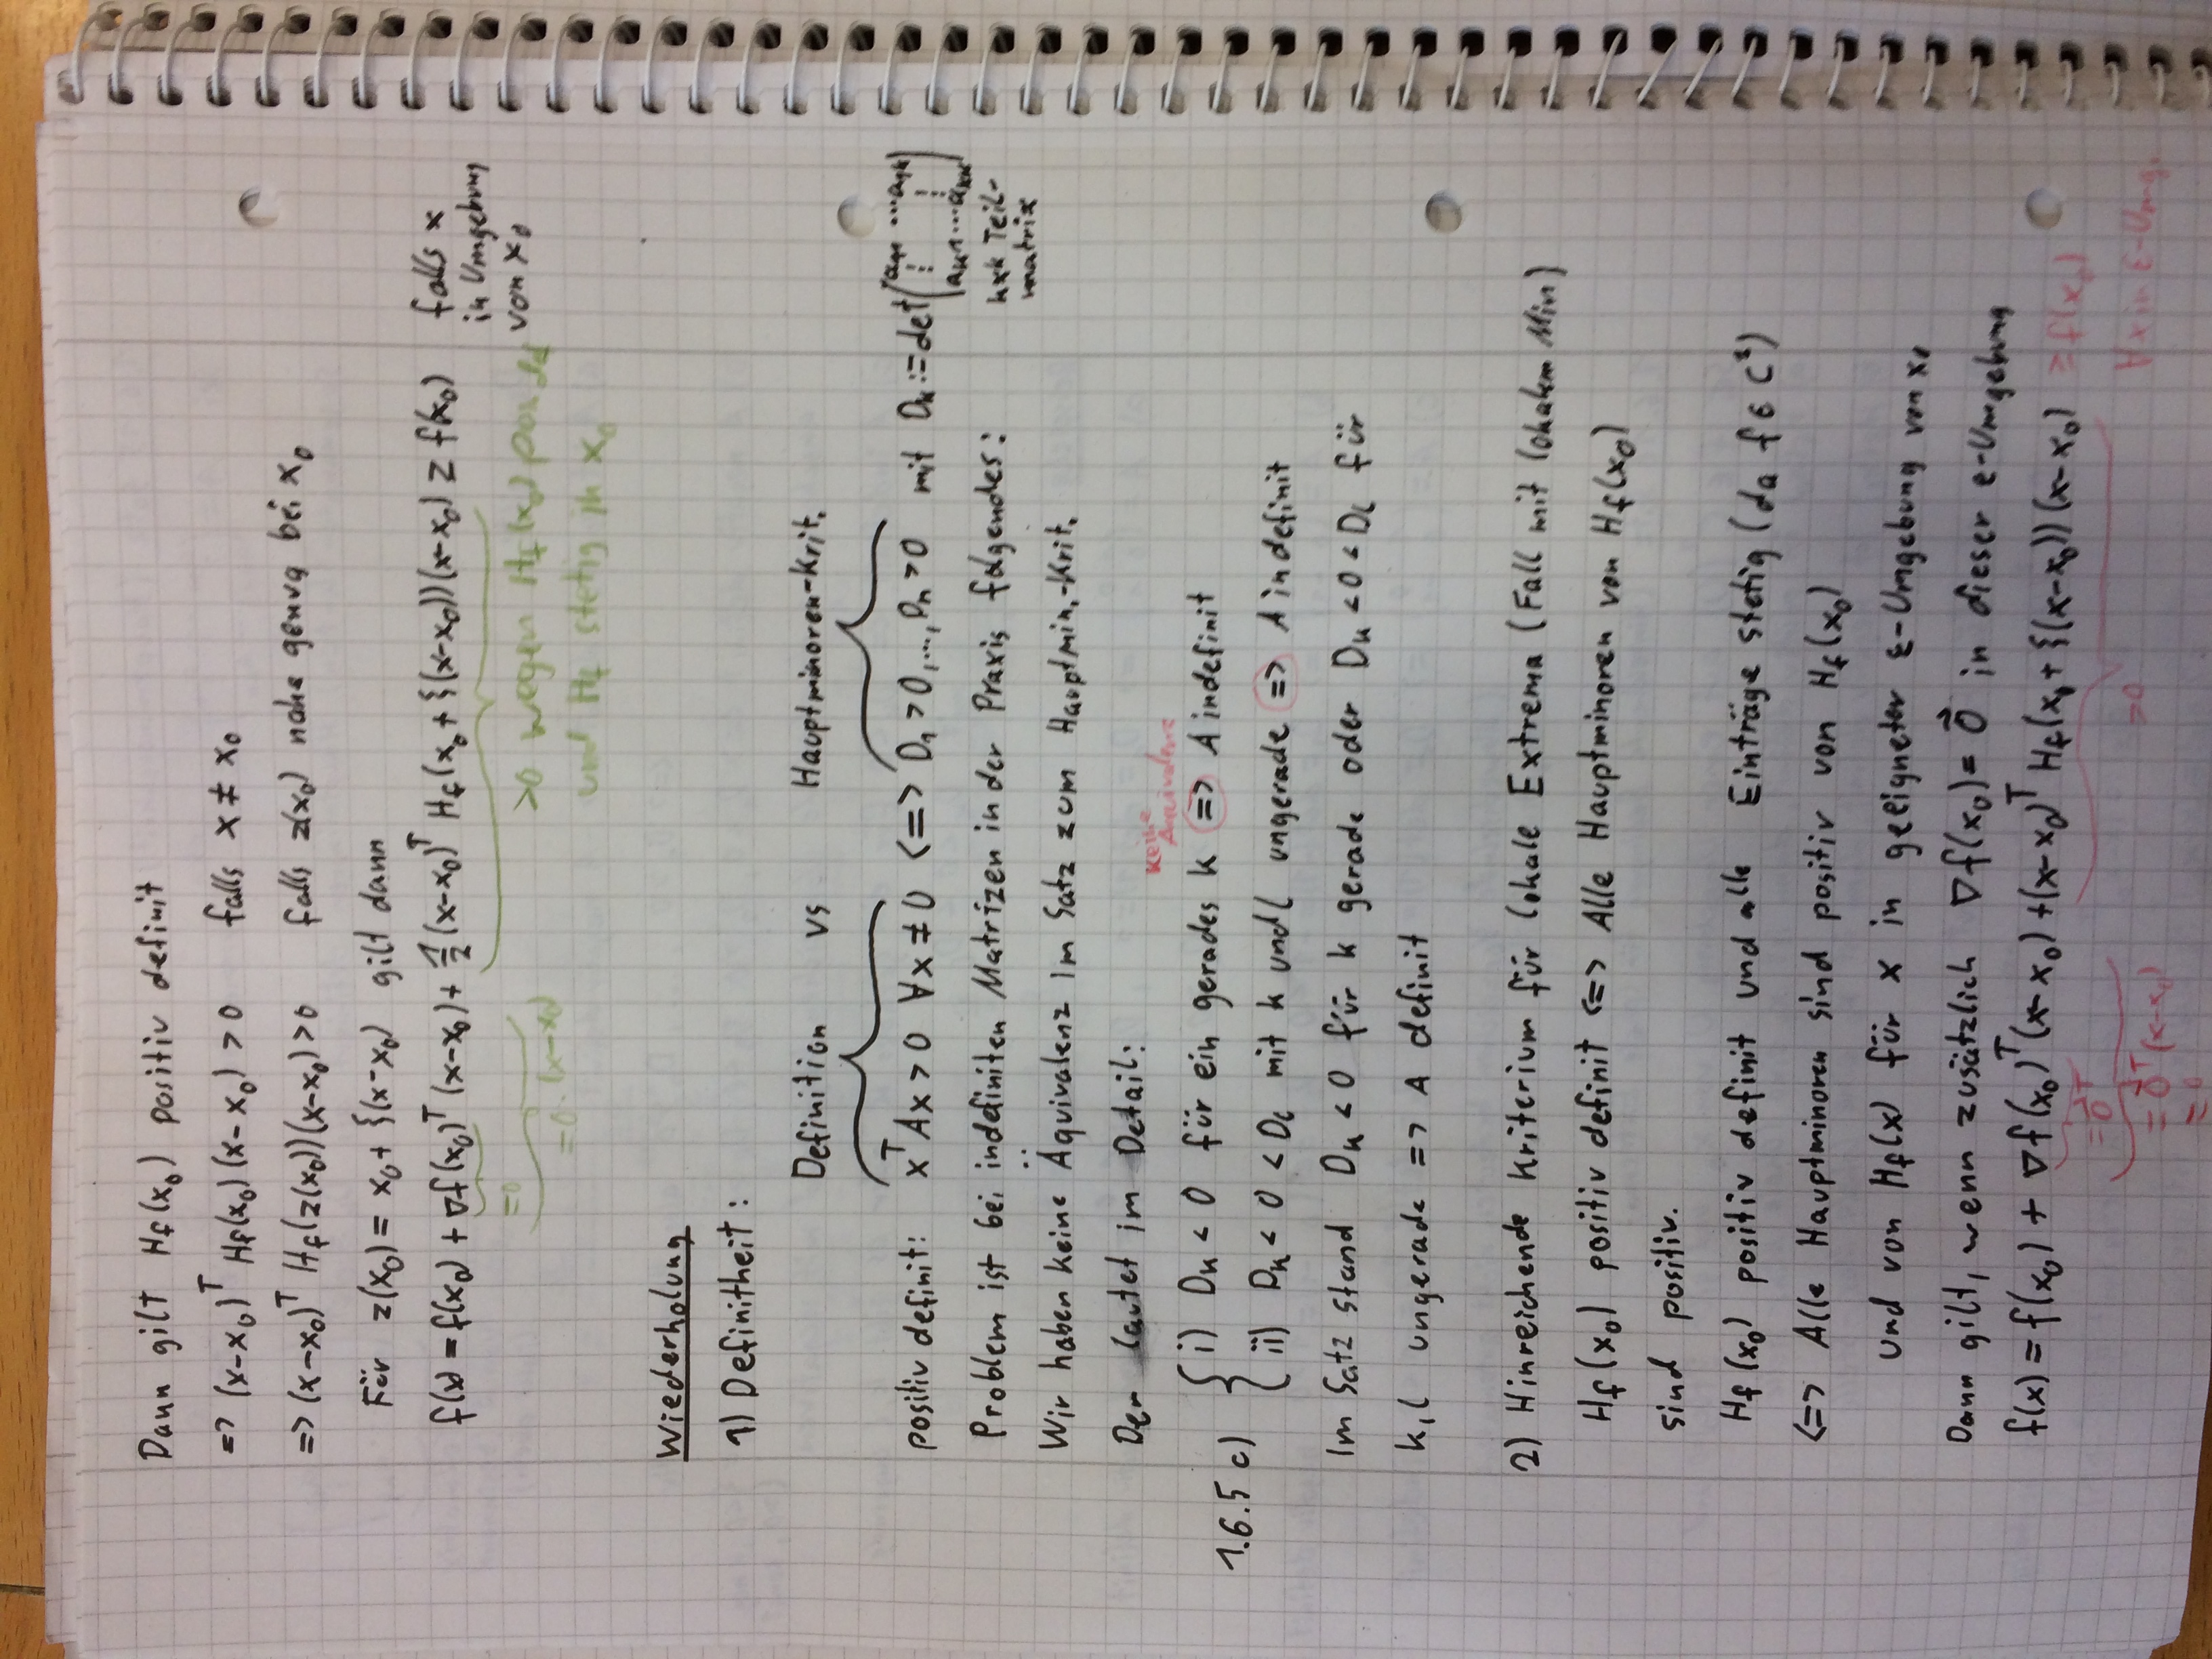 Dann gilt Hf(x₀) positiv definit
=> (x-x₀)ᵀ Hf(x₀)(x-x₀) > 0 falls x ≠ x₀
=> (x-x₀)ᵀ Hf(z(x₀))(x-x₀) > 0 falls z(x₀) nahe genug bei x₀
Für z(x₀) = x₀ + ξ(x-x₀) gilt dann
f(x) = f(x₀) + ∇f(x₀)ᵀ (x-x₀) + 1/2 (x-x₀)ᵀ Hf(x₀ + ξ(x-x₀))(x-x₀) ≥ f(x₀) falls x
in Umgebung
von x₀
=0
=0·(x-x₀)
>0 wegen Hf(x₀) pos def
und Hf stetig in x₀
Wiederholung
1) Definitheit:
Definition vs Hauptminoren-Krit.
positiv definit: xᵀAx > 0 ∀x ≠ 0 <=> D₁ > 0, ..., Dₙ > 0 mit Dₖ := det (a₁₁ ... a₁ₖ
⋮ ⋮
aₖ₁ ... aₖₖ)
kxk Teil-
matrix
Problem ist bei indefiniten Matrizen in der Praxis folgendes:
Wir haben keine Äquivalenz im Satz zum Hauptmin.-Krit.
Der lautet im Detail:
keine
Äquivalenz
1.6.5 c) { i) Dₖ < 0 für ein gerades k => A indefinit
ii) Dₖ < 0 < Dₗ mit k und l ungerade => A indefinit
Im Satz stand Dₖ < 0 für k gerade oder Dₖ < 0 < Dₗ für
k, l ungerade => A definit
2) Hinreichende Kriterium für lokale Extrema (Fall mit lokalem Min)
Hf(x₀) positiv definit <=> Alle Hauptminoren von Hf(x₀)
sind positiv.
Hf(x₀) positiv definit und alle Einträge stetig (da f ∈ C²)
<=> Alle Hauptminoren sind positiv von Hf(x₀)
und von Hf(x) für x in geeigneter ε-Umgebung von x₀
Dann gilt, wenn zusätzlich ∇f(x₀) = 0⃗ in dieser ε-Umgebung
f(x) = f(x₀) + ∇f(x₀)ᵀ(x-x₀) + (x-x₀)ᵀ Hf(x₀ + ξ(x-x₀))(x-x₀) ≥ f(x₀)
=0⃗ᵀ
= 0⃗ᵀ(x-x₀)
= 0
>0
∀x in ε-Umg.